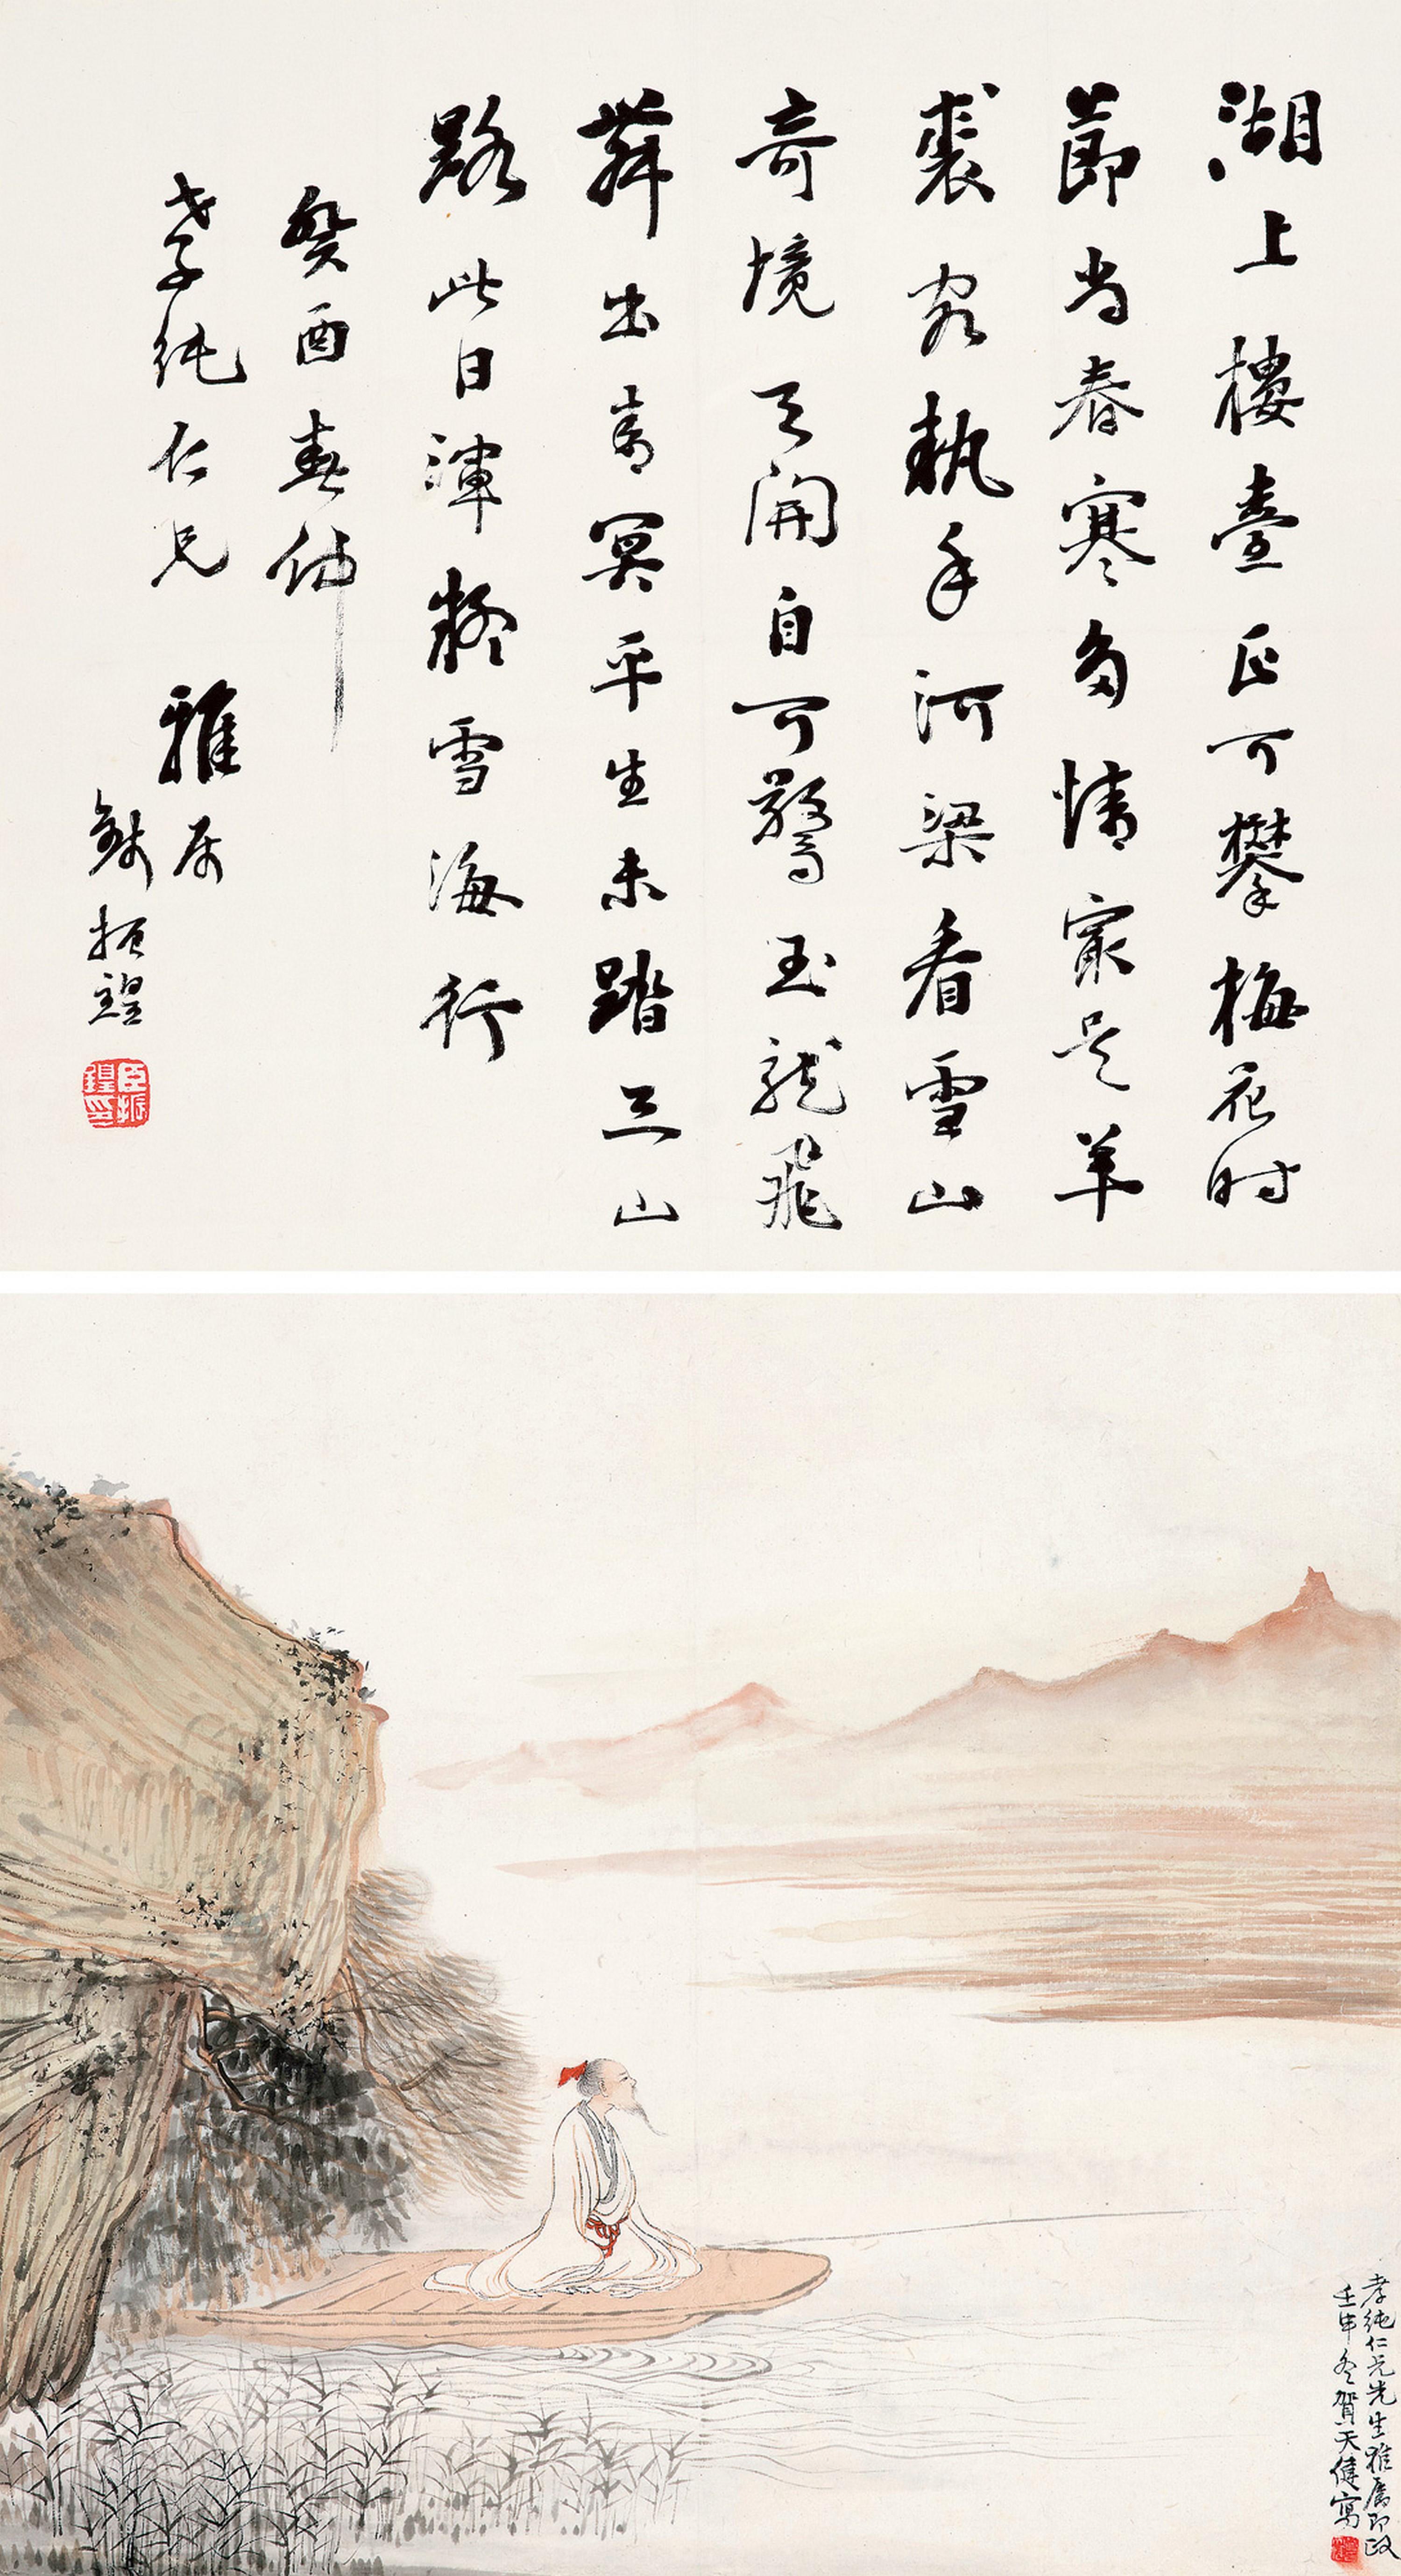 湖上樓臺正可攀梅花時
節尚春寒多情最是羊
裘客執手河梁看雪山
奇境天開自可驚玉龍飛
舞出青冥平生未踏三山
路此日渾疑雪海行
癸酉春仲
孝純仁兄 雅屬
錢振鍠
臣振鍠印
孝純仁兄先生雅屬即政
壬申冬賀天健寫